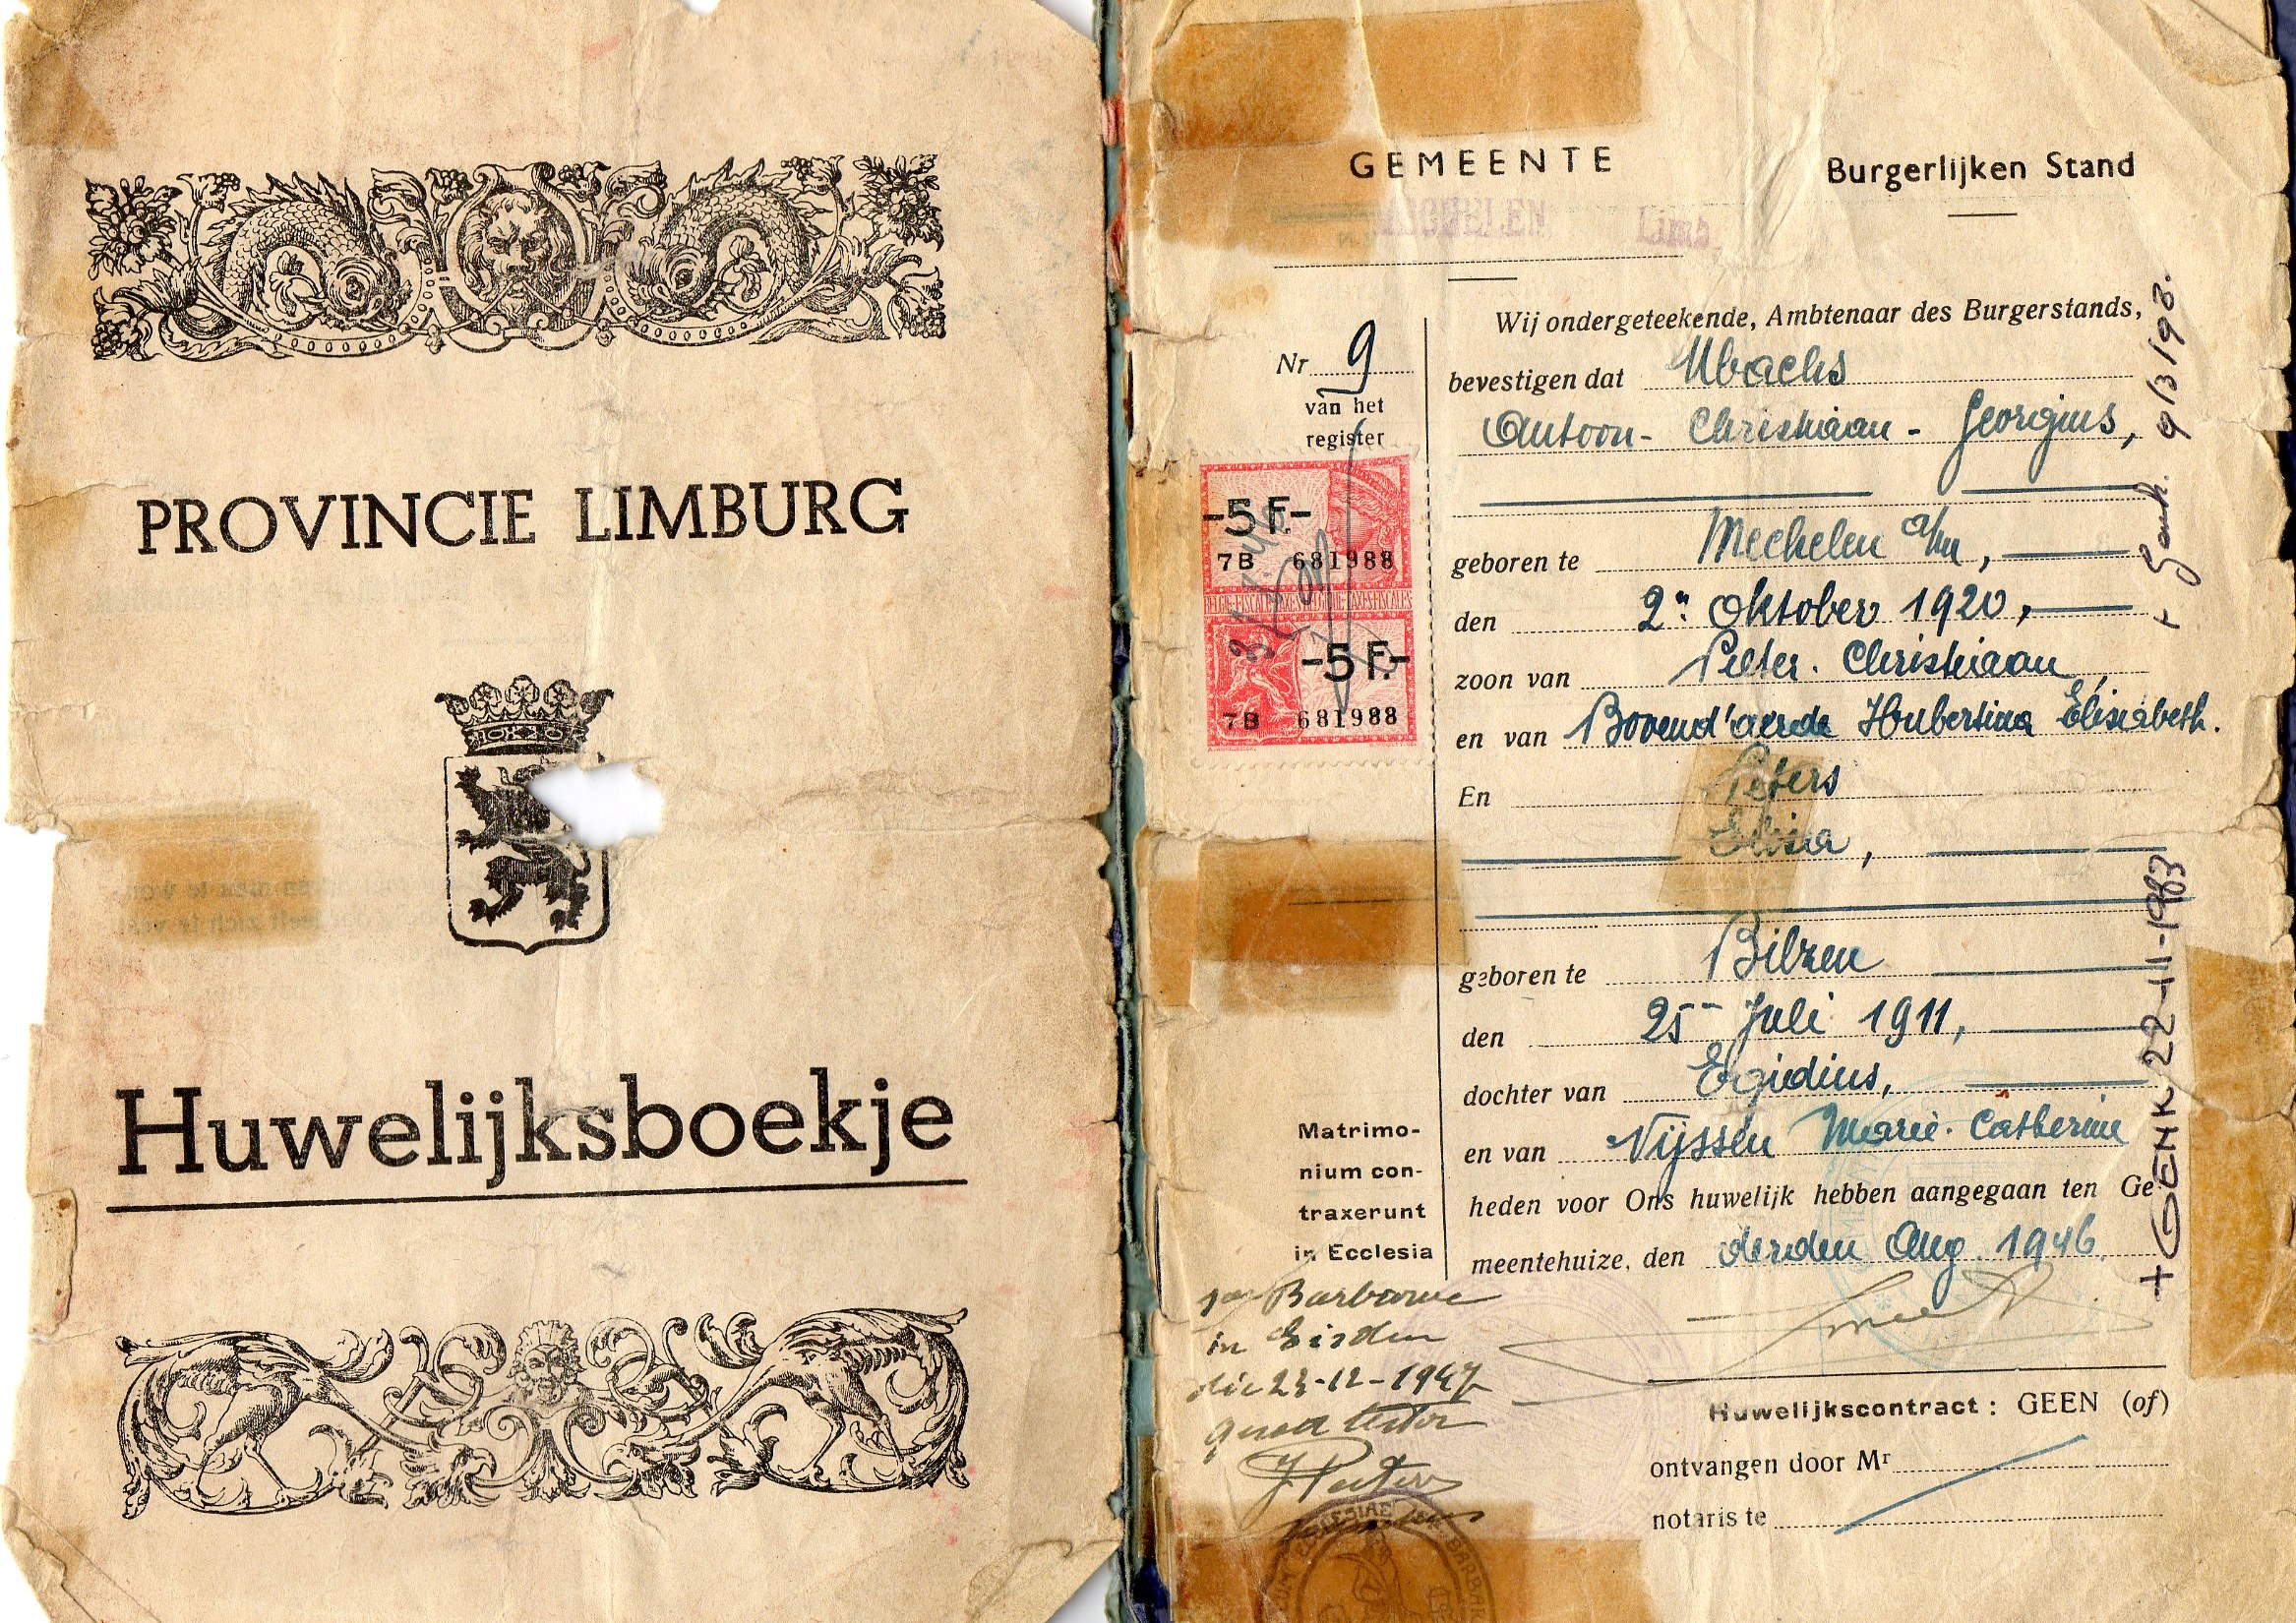 PROVINCIE LIMBURG
Huwelijksboekje
GEMEENTE
Burgerlijken Stand
Limb.
Nr 9
van het
register
-5 F.-
7B 681988
-5 F.-
7B 681988
Wij ondergeteekende, Ambtenaar des Burgerstands,
bevestigen dat Ubachs
Antoon - Christiaan - Georgius,
geboren te Mechelen a/m,
den 2n Oktober 1920,
zoon van Pieter. Christiaan,
en van Bovend'aerde Hubertina Elisabeth.
En Peters
Elisa,
geboren te Bilzen
den 25 Juli 1911,
dochter van Egidius,
en van Nijssen Marie. Catherine
heden voor Ons huwelijk hebben aangegaan ten Ge
meentehuize, den derden Aug. 1946.
+ Genk. 9/3/98.
+ GENK 22-11-1983
Matrimo-
nium con-
traxerunt
in Ecclesia
Barbarae
in Eisden
die 23-12-1947
quod testor
J Peeters
Huwelijkscontract : GEEN (of)
ontvangen door Mr
notaris te
ECCLESIAE